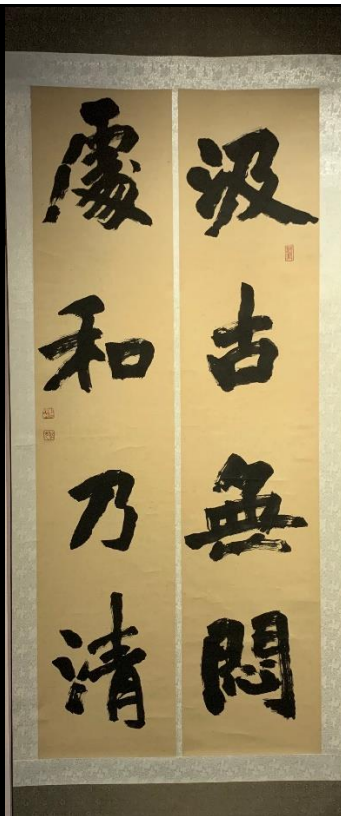 汲古無悶
處和乃清